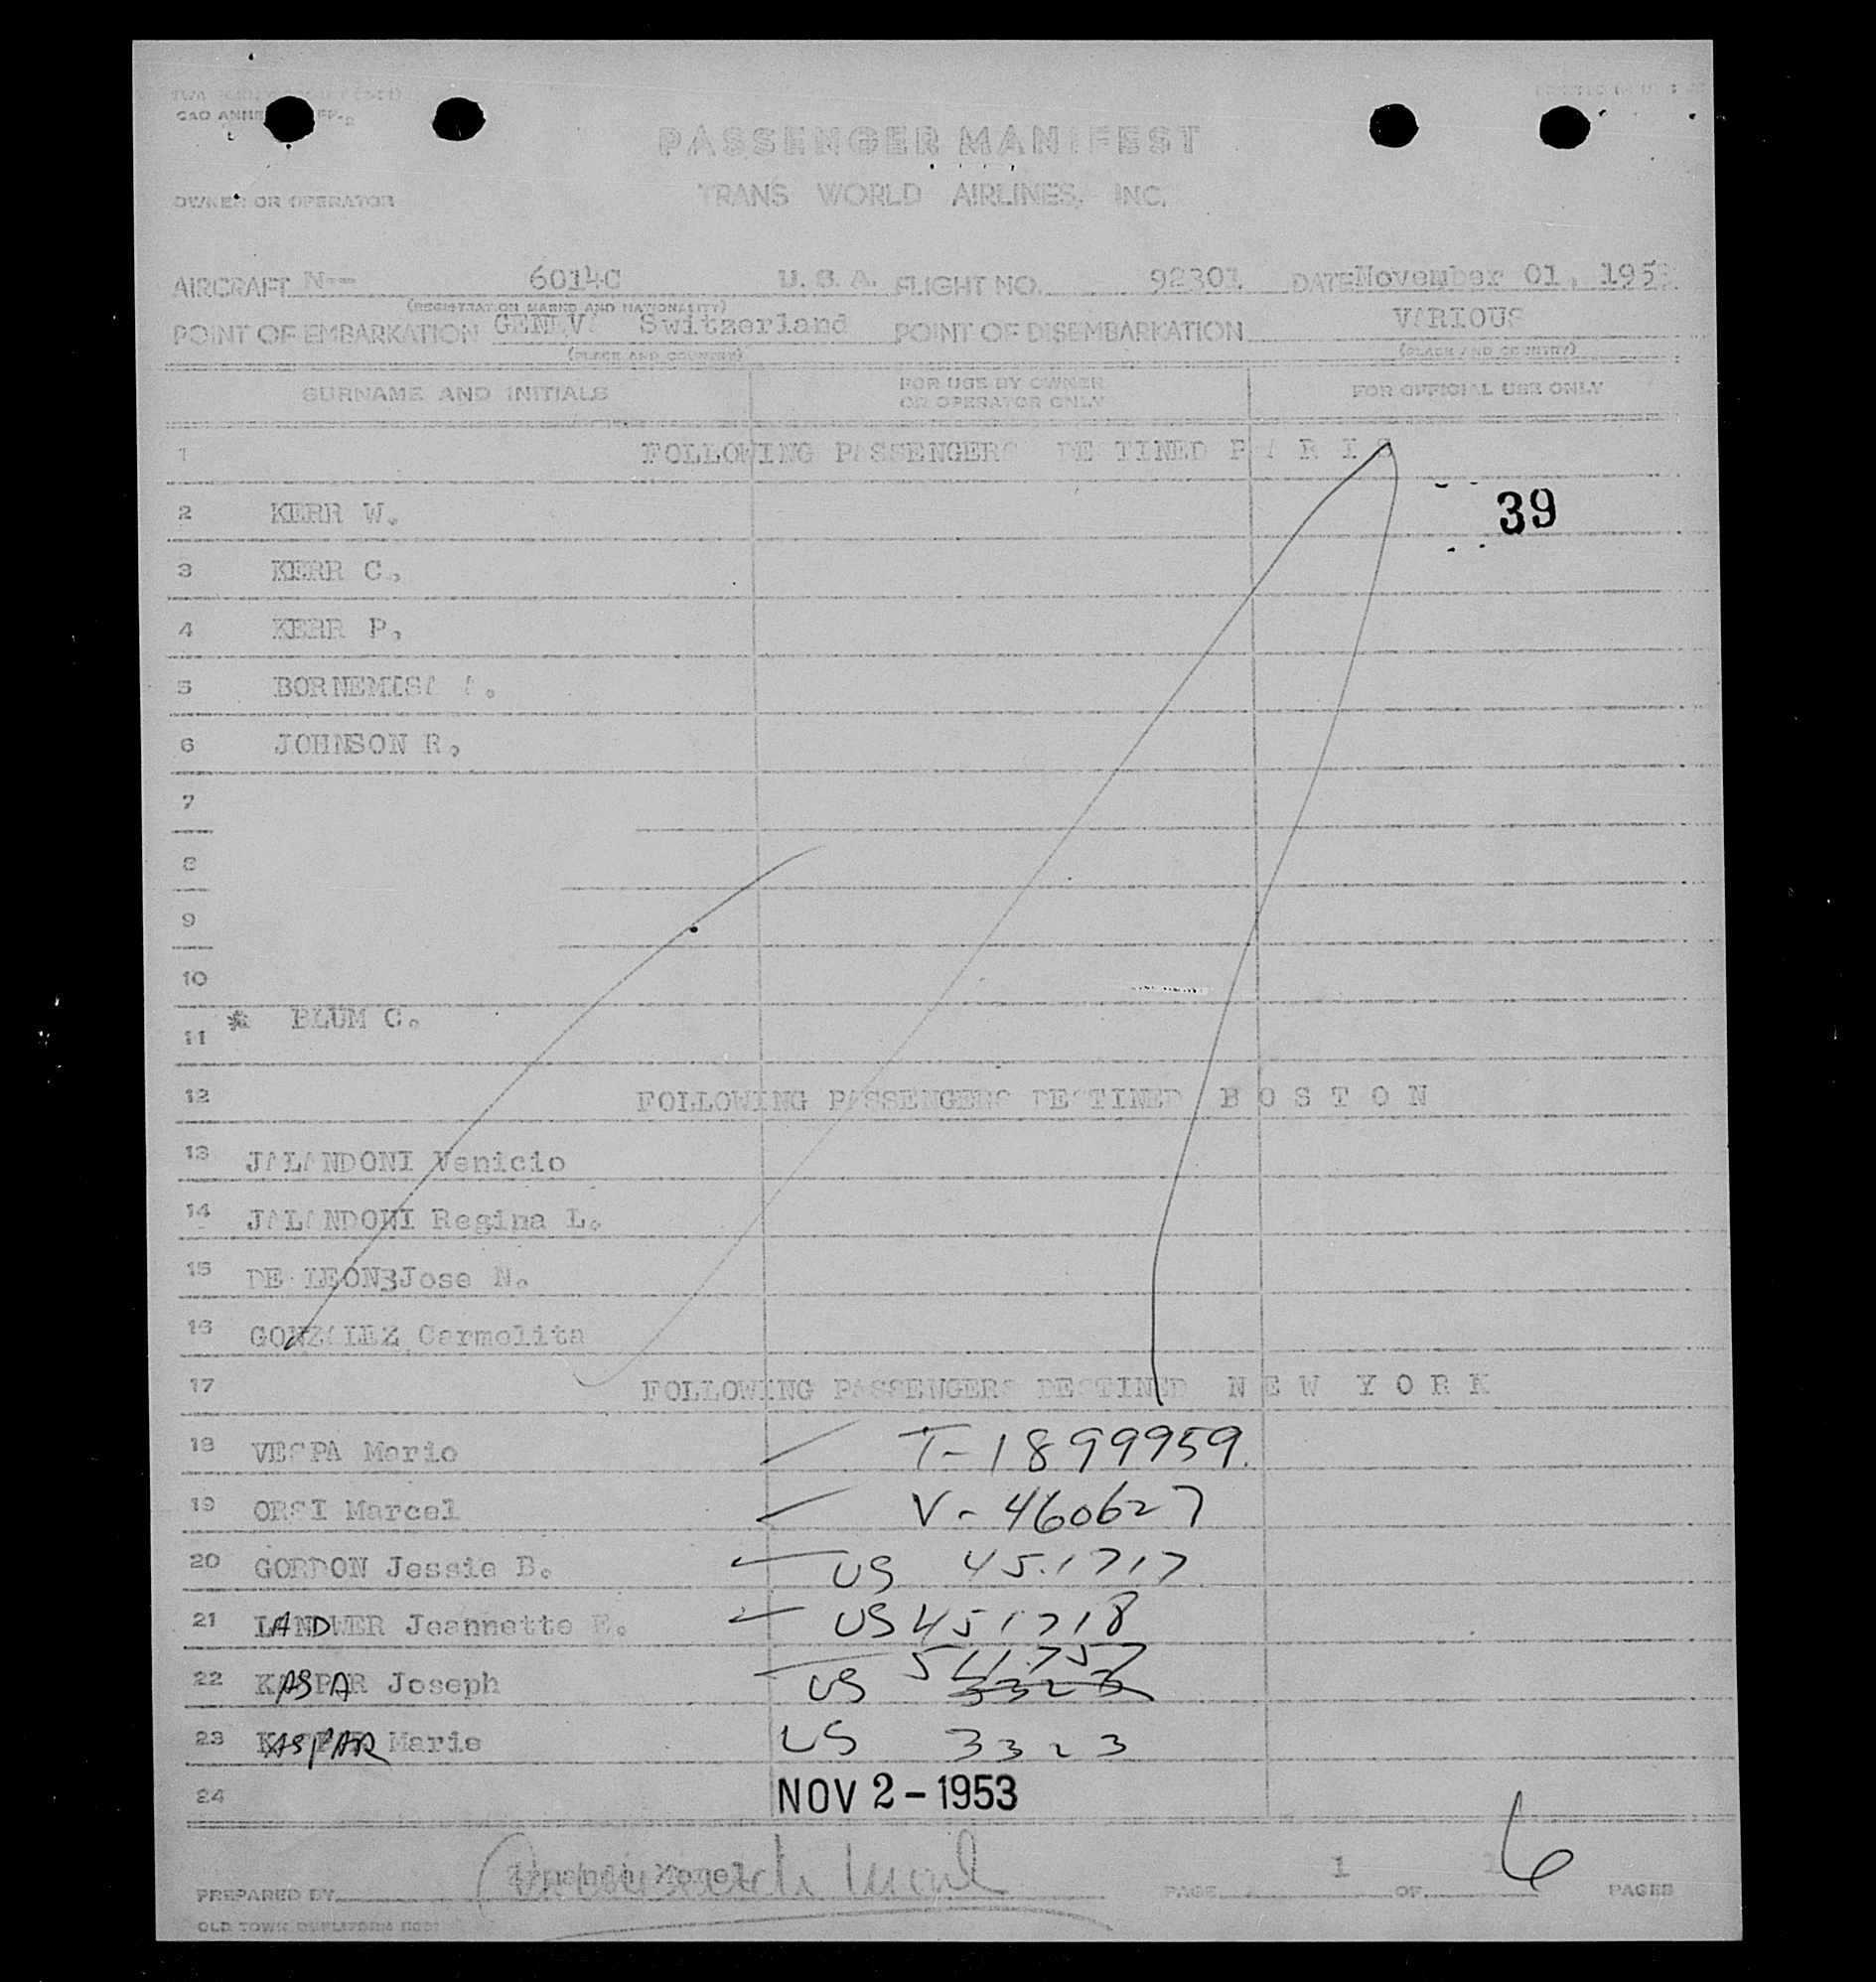 PASSENGER MANIFEST
OWNER OR OPERATOR TRANS WORLD AIRLINES, INC.
AIRCRAFT N-- 6014C U.S.A. FLIGHT NO. 92301 DATE November 01, 1953
(REGISTRATION MARKS AND NATIONALITY)
POINT OF EMBARKATION GENEVA Switzerland POINT OF DISEMBARKATION VARIOUS
(PLACE AND COUNTRY) (PLACE AND COUNTRY)
SURNAME AND INITIALS FOR USE BY OWNER OR OPERATOR ONLY FOR OFFICIAL USE ONLY
1 FOLLOWING PASSENGERS DESTINED P A R I S
2 KERR W. 39
3 KERR C,
4 KERR P,
5 BORNEMISA A.
6 JOHNSON R,
7
8
9
10
* PLUM C.
11
12 FOLLOWING PASSENGERS DESTINED B O S T O N
13 JALANDONI Venicio
14 JALANDONI Regina L.
15 DE LEON Jose N.
16 GONZALEZ Carmelita
17 FOLLOWING PASSENGERS DESTINED N E W Y O R K
18 VESPA Mario T-1899959.
19 ORSI Marcel V-460627
20 GORDON Jessie B. US 451717
21 LANDWER Jeannette E. US 451718
22 KASPAR Joseph US 541757 3323
23 KASPAR Marie US 3323
24 NOV 2-1953
PREPARED BY PAGE 1 OF 6 PAGES